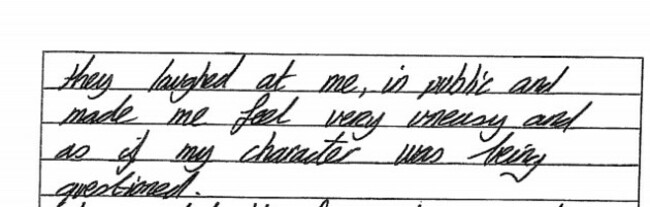 they laughed at me, in public and
made me feel very uneasy and
as if my character was being
questioned.